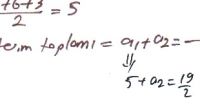 +6+3/2 = 5
toplamı = a₁ + a₂ = —
⇓
5 + a₂ = 19/2